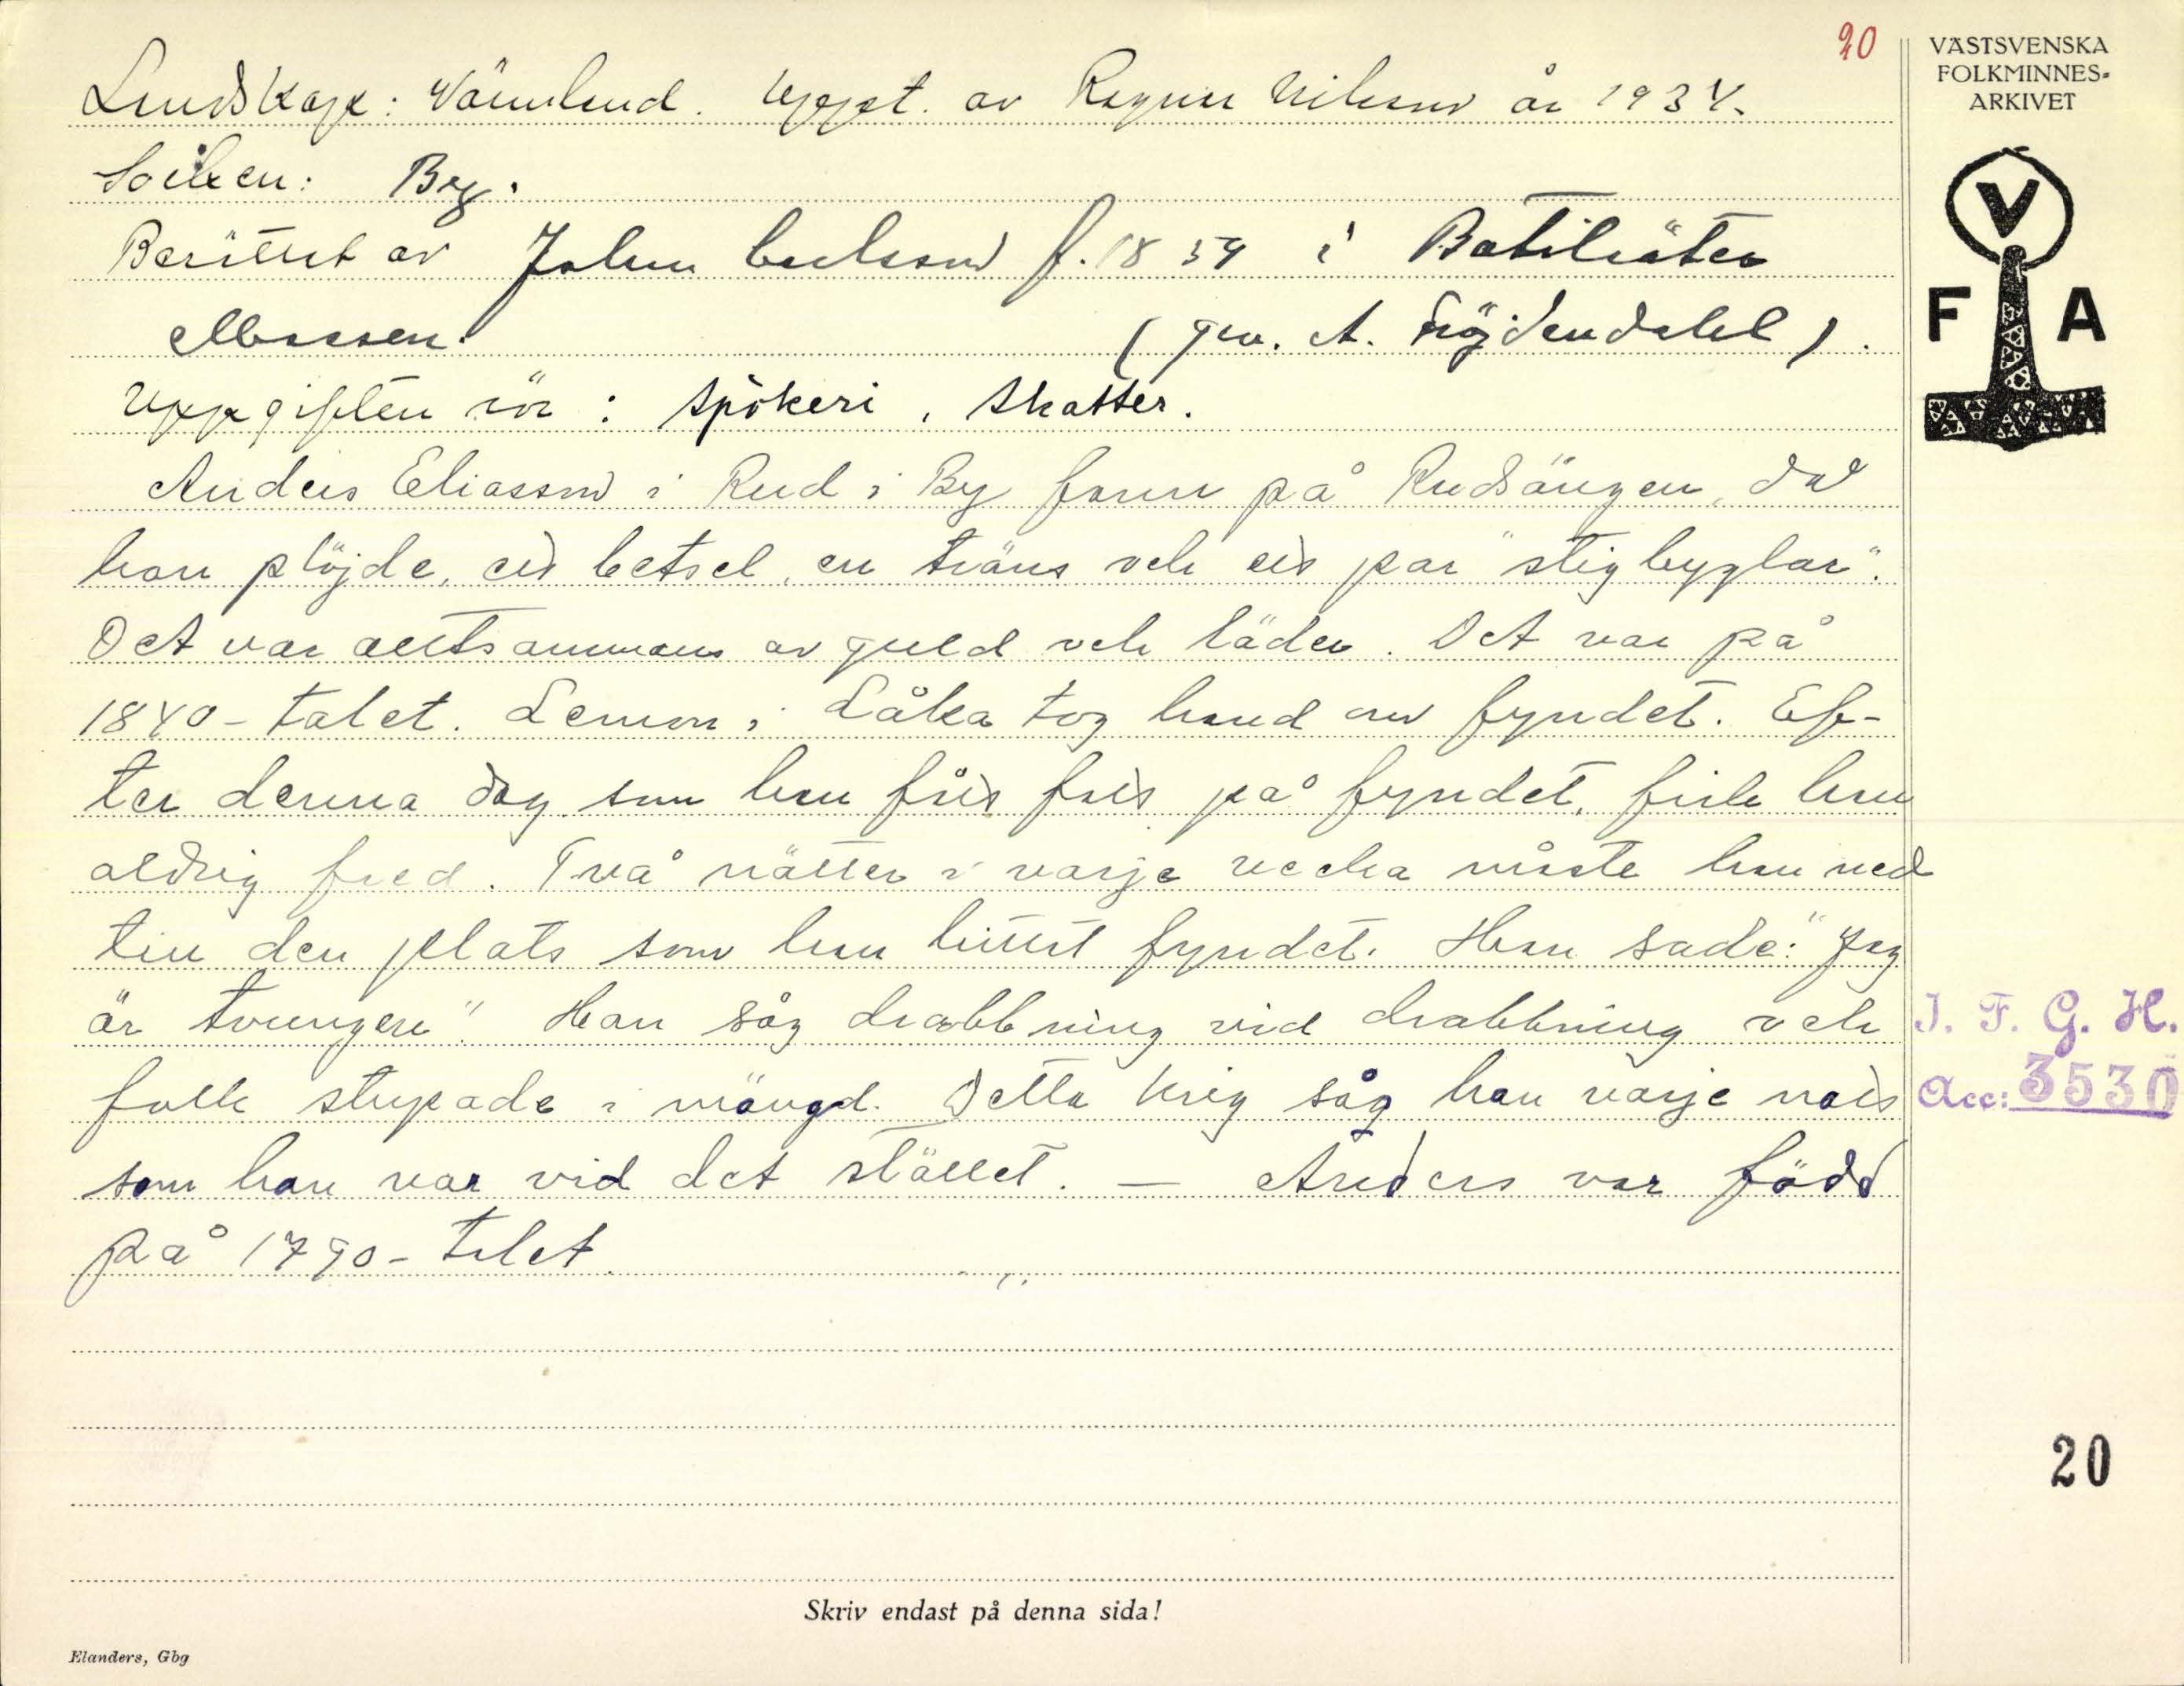 20
Landskap: Värmland. Uppt. av Ragnar Nilsson år 1934.
Socken: By.
Berättat av Johan Carlsson f. 1854 i
Mossen. (gm. A. Fröjdendahl).
Uppgiften rör: Spökeri, Skatter.
Anders Eliasson i Rud i By fann på Rudsängen, då
han plöjde, ett betsel, en träns och ett par "stigbyglar".
Det var alltsammans av guld och läder. Det var på
1840-talet. Leman i Låka tog hand om fyndet. Ef-
ter denna dag som han fått fatt på fyndet, fick han
aldrig fred. Två nätter i varje vecka måste han ned
till den plats som han hittat fyndet. Han sade: "Jag
är tvungen". Han såg drabbning vid drabbning och
folk stupade i mängd. Detta krig såg han varje natt
som han var vid det stället. — Anders var född
på 1790-talet.
VÄSTSVENSKA
FOLKMINNES-
ARKIVET
V
F A
I. F. G. H.
Acc: 3530
20
Skriv endast på denna sida!
Elanders, Gbg